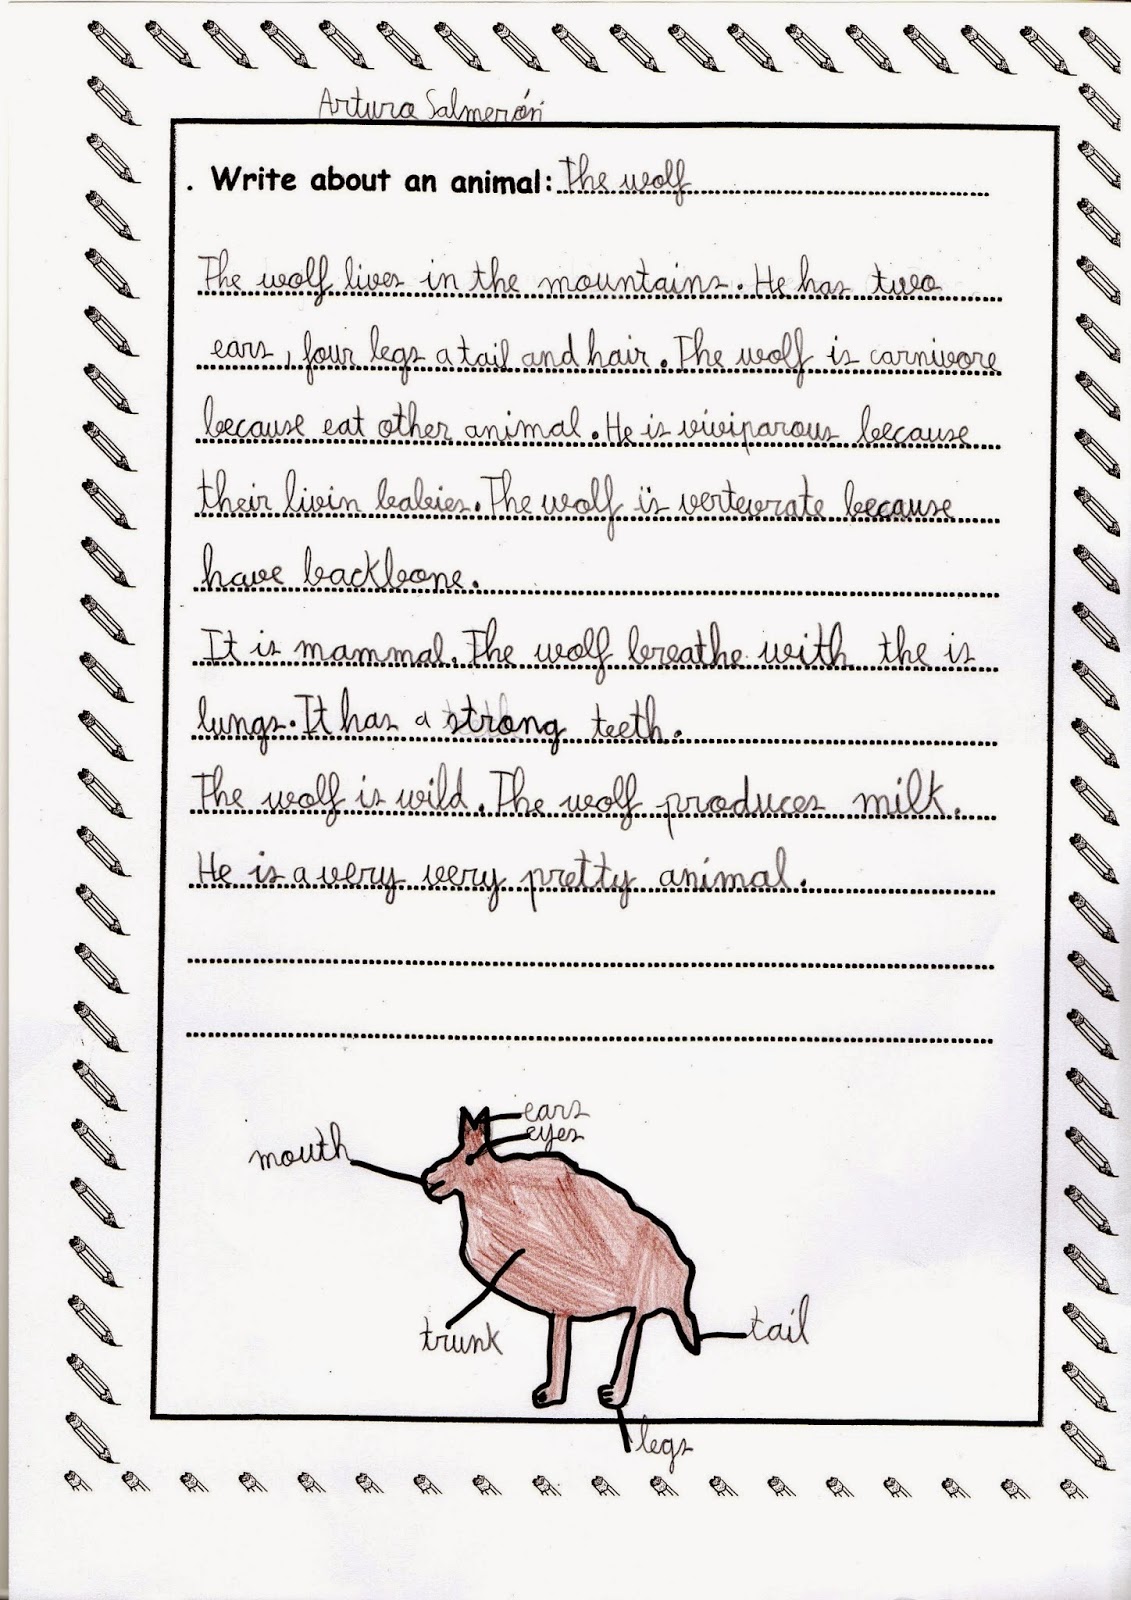 Arturo Salmerón
. Write about an animal: The wolf
The wolf lives in the mountains. He has two
ears, four legs a tail and hair. The wolf is carnivore
because eat other animal. He is viviparous because
their livin babies. The wolf is vertevrate because
have backbone.
It is mammal. The wolf breathe with the is
lungs. It has a strong teeth.
The wolf is wild. The wolf produces milk.
He is a very very pretty animal.
ears
eyes
mouth
trunk
tail
legs